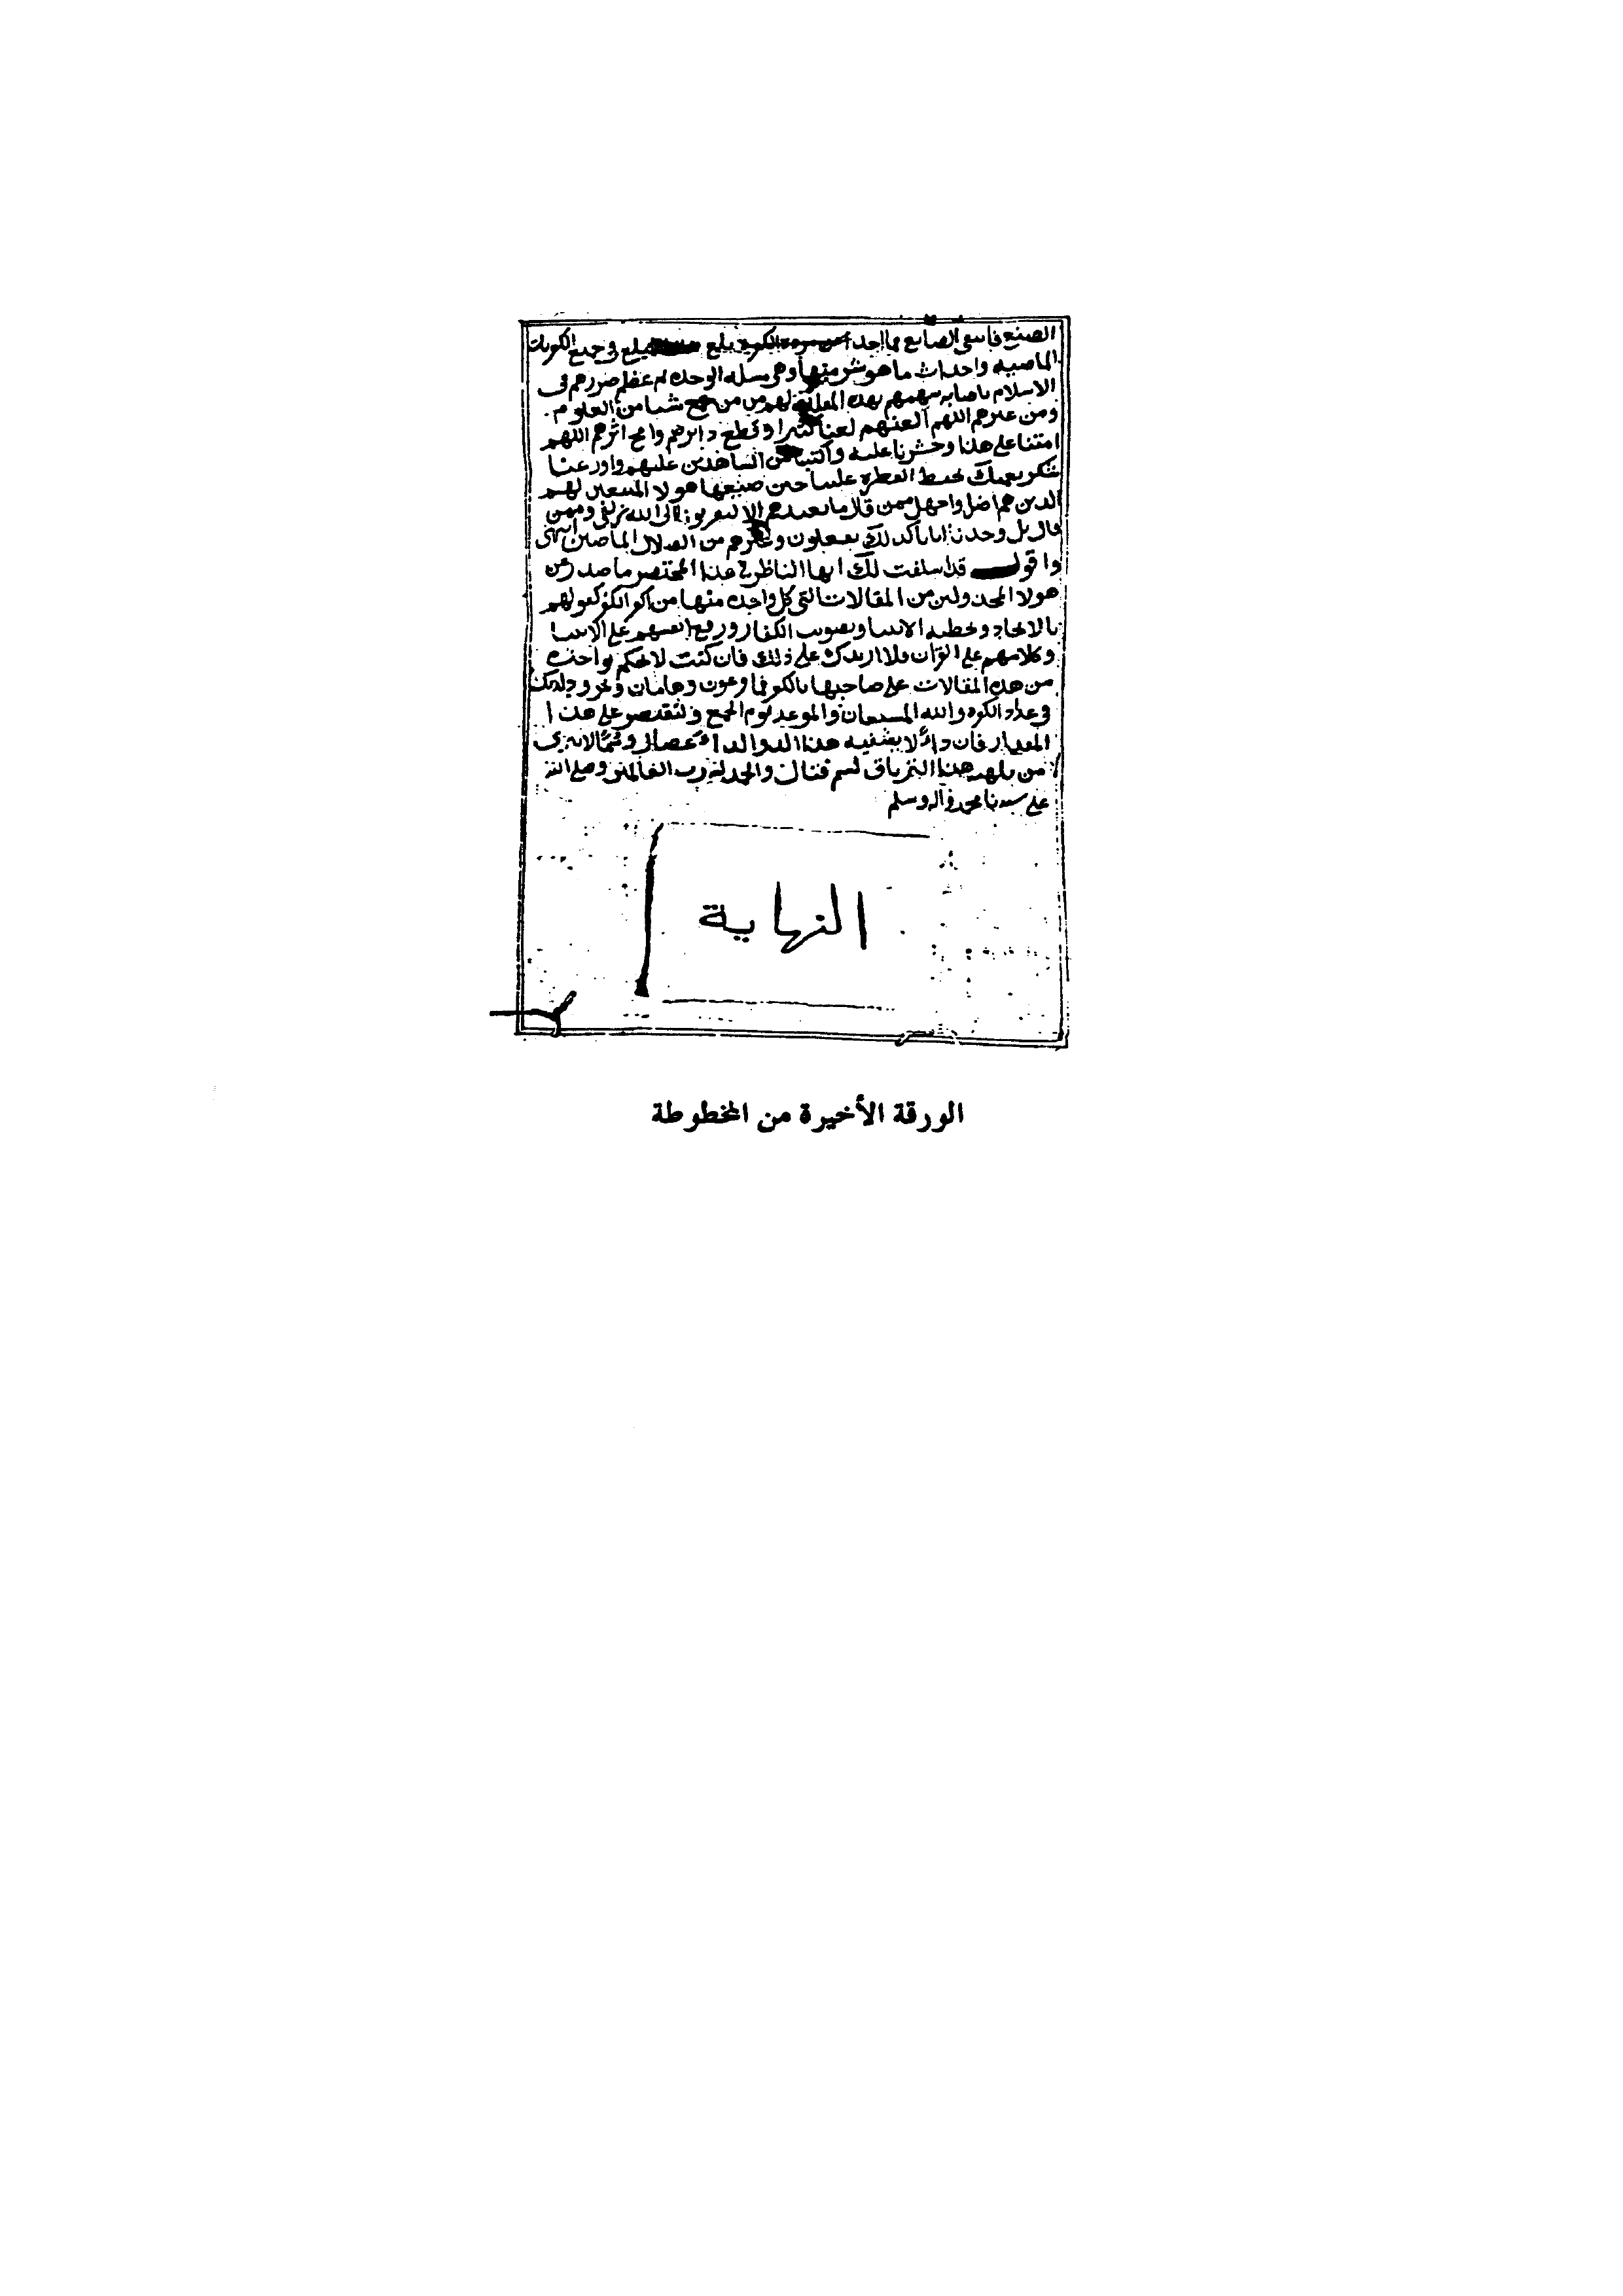 الصنع فانتفى الصانع فما احد احن من هذه الكفريه بلغ مبلغهم في جميع الكفريات
الماضيه واحداث ما هو شر منها وهي مسله الوحده ثم عظم ضررهم في
الاسلام باصابه سهمهم بهذه المقاله لهم من جمع شيا من العلوم
ومن غيرهم اللهم العنهم لعنا كثيرا واقطع دابرهم وامح اثرهم اللهم
امتنا على هذا واحشرنا عليه واكتبنا من الشاهدين عليهم واوزعنا
شكر نعمتك بحفظ الفطره علينا حين ضيعها هولا المتبعين لهم
الذين هم اضل واجهل ممن قال ما نعبدهم الا ليقربونا الى الله زلفى وممن
قال بل وجدنا ابانا كذلك يفعلون وغيرهم من الضلال الماضين انتهى
واقول قد اسلفت لك ايها الناظر في هذا المختصر ما صدر عن
هولا المخذولين من المقالات التي كل واحده منها من اكفر الكفر كقولهم
بالاتحاد وتخطيه الانبيا وتصويب الكفار ورفع انفسهم على الانبيا
وكلامهم على القران فلا ازيدك على ذلك فان كنت لا تحكم بواحده
من هذه المقالات على صاحبها بالكفر فما فرعون وهامان ونمرود لديك
في عداد الكفره والله المستعان والموعد يوم الجمع ولنقتصر على هذا
المقدار فان داءً لا يشفيه هذا الدوا لداءٌ عضال وسُمًّا لا يبري
من يلهمه هذا الترياق لسم قتال والحمد لله رب العالمين وصلى الله
على سيدنا محمد واله وسلم
النهاية
الورقة الأخيرة من المخطوطة